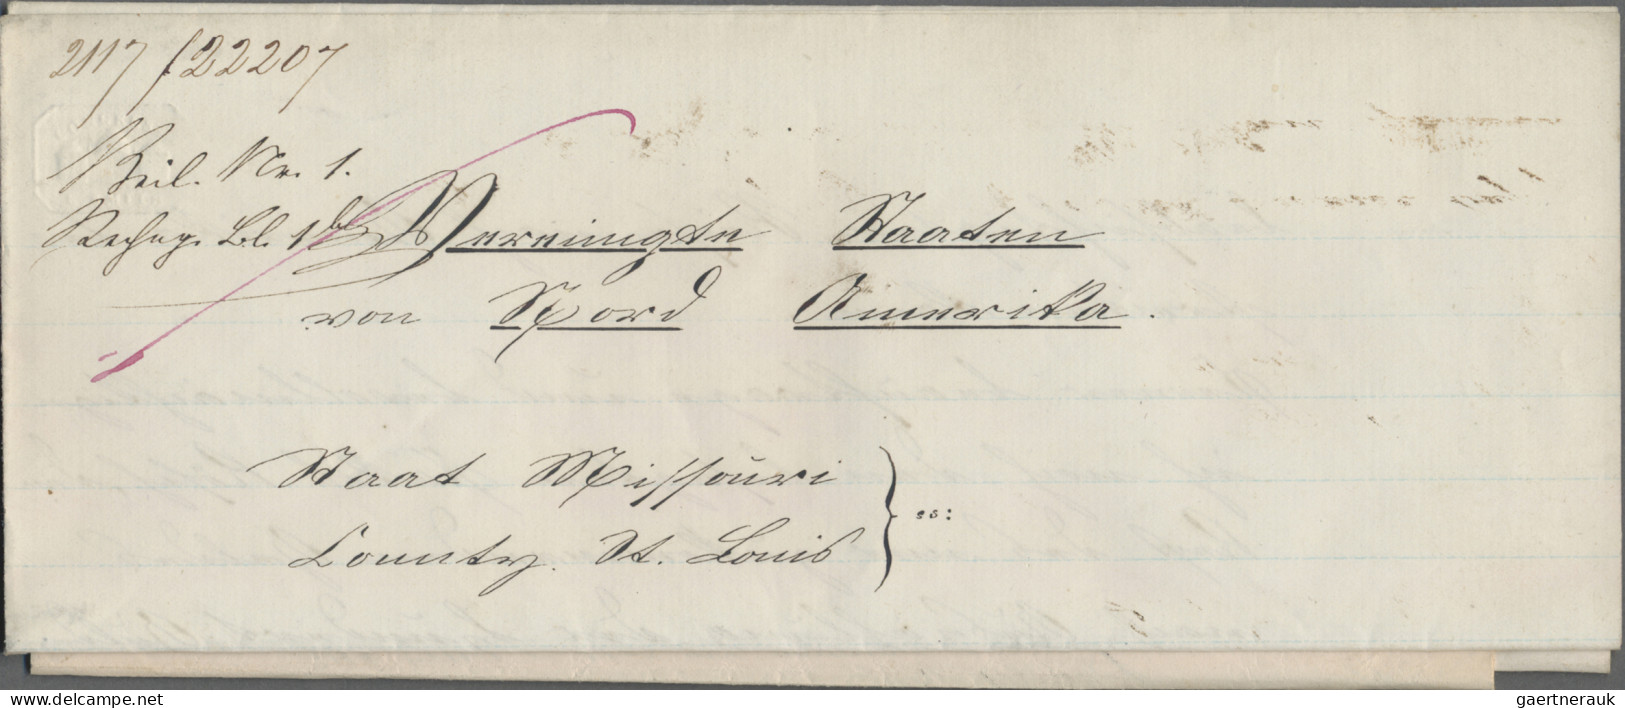 2117 / 22207
Beil. Nr. 1.
Rechng. Bl. 1
Vereinigte Staaten
von Nord Amerika.
Staat Missouri
County St. Louis } ss:
gaertnerauk